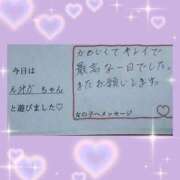 今日は
ちゃん
と遊びました♡
かわいくてキレイで
最高な一日でした。
またお願いします。
女の子へメッセージ